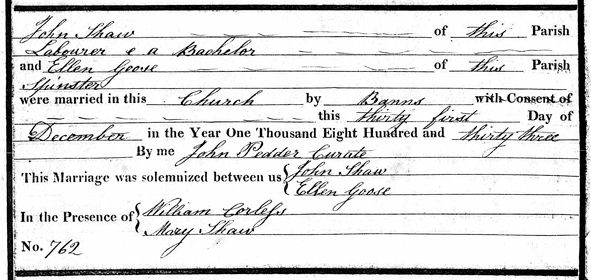 John Shaw of this Parish
Labourer & a Bachelor
and Ellen Goose of this Parish
Spinster
were married in this Church by Banns with Consent of
this thirty first Day of
December in the Year One Thousand Eight Hundred and thirty three
By me John Pedder Curate
This Marriage was solemnized between us { John Shaw
Ellen Goose
In the Presence of { William Corless
Mary Shaw
No. 762